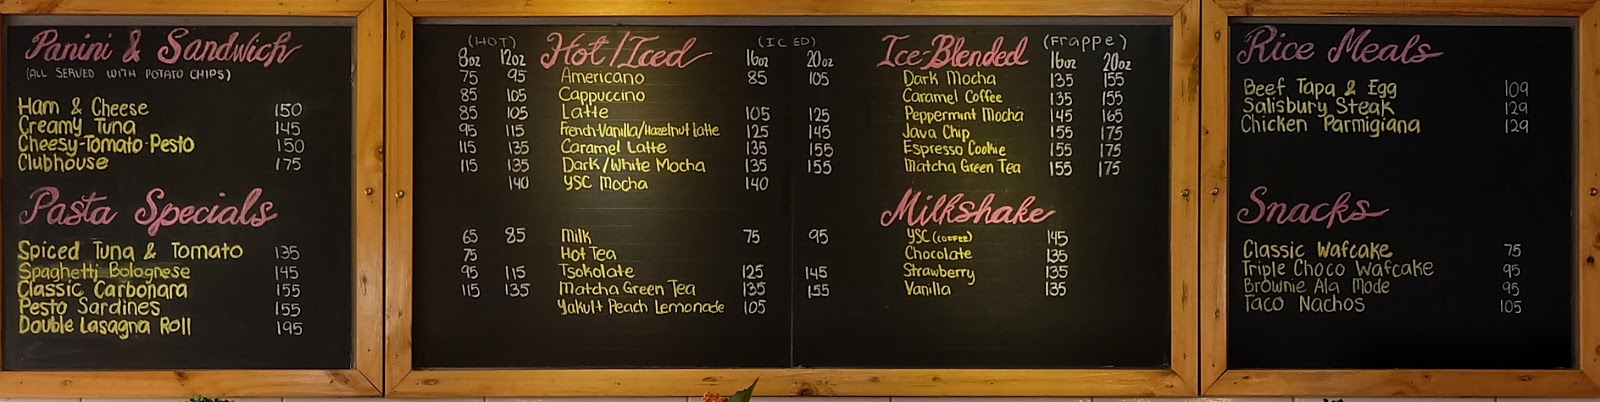 Panini & Sandwich
(ALL SERVED WITH POTATO CHIPS)
Ham & Cheese 150
Creamy Tuna 145
Cheesy-Tomato-Pesto 150
Clubhouse 175
Pasta Specials
Spiced Tuna & Tomato 135
Spaghetti Bolognese 145
Classic Carbonara 155
Pesto Sardines 155
Double Lasagna Roll 195
(HOT) Hot/Iced (ICED)
8oz 12oz 16oz 20oz
75 95 Americano 85 105
85 105 Cappuccino
85 105 Latte 105 125
95 115 French-Vanilla/Hazelnut latte 125 145
115 135 Caramel Latte 135 155
115 135 Dark/White Mocha 135 155
140 YSC Mocha 140
65 85 Milk 75 95
75 Hot Tea
95 115 Tsokolate 125 145
115 135 Matcha Green Tea 135 155
Yakult Peach Lemonade 105
Ice-Blended (Frappe)
16oz 20oz
Dark Mocha 135 155
Caramel Coffee 135 155
Peppermint Mocha 145 165
Java Chip 155 175
Espresso Cookie 155 175
Matcha Green Tea 155 175
Milkshake
YSC (COFFEE) 145
Chocolate 135
Strawberry 135
Vanilla 135
Rice Meals
Beef Tapa & Egg 109
Salisbury Steak 129
Chicken Parmigiana 129
Snacks
Classic Wafcake 75
Triple Choco Wafcake 95
Brownie Ala Mode 95
Taco Nachos 105